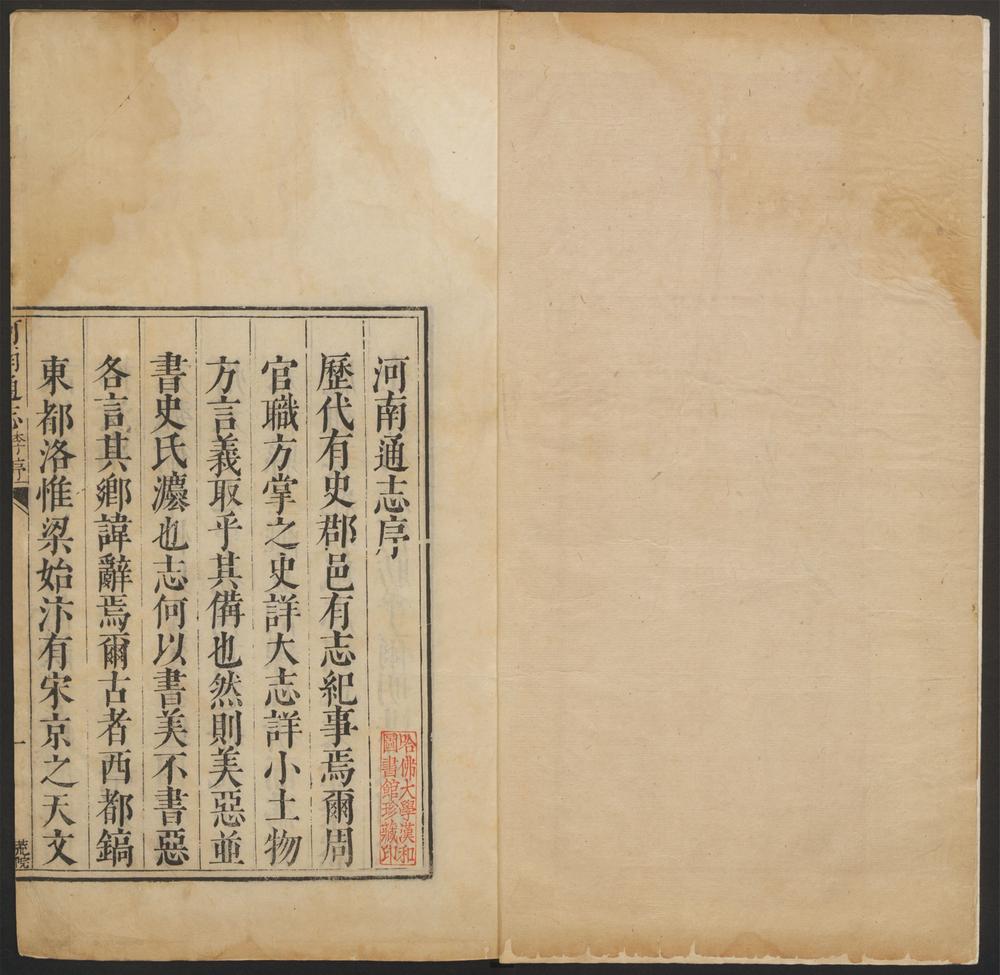 河南通志序
哈佛大學漢和
圖書館珍藏印
歷代有史郡邑有志紀事焉爾周
官職方掌之史詳大志詳小土物
方言義取乎其備也然則美惡並
書史氏灋也志何以書美不書惡
各言其鄉諱辭焉爾古者西都鎬
東都洛惟梁始汴有宋京之天文
河南通志 李序
一